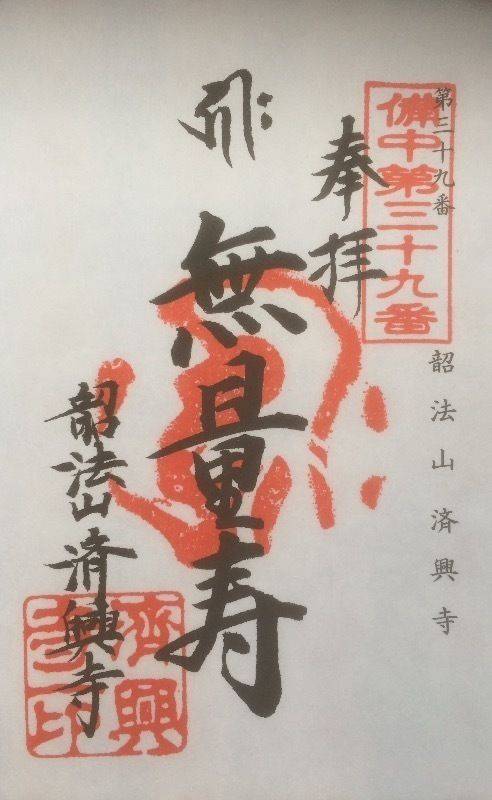 第三十九番
韶法山済興寺
備中第三十九番
奉拝
無量寿
韶法山済興寺
濟興寺印